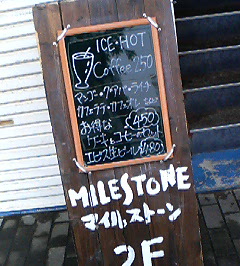 ICE・HOT
Coffee 250
マンゴー・グアバ・ライチ
カフェラテ・カフェオレ
お得な 450
ケーキ&コーヒーのセット
エビス生ビール
MILESTONE
マイルストーン
2F